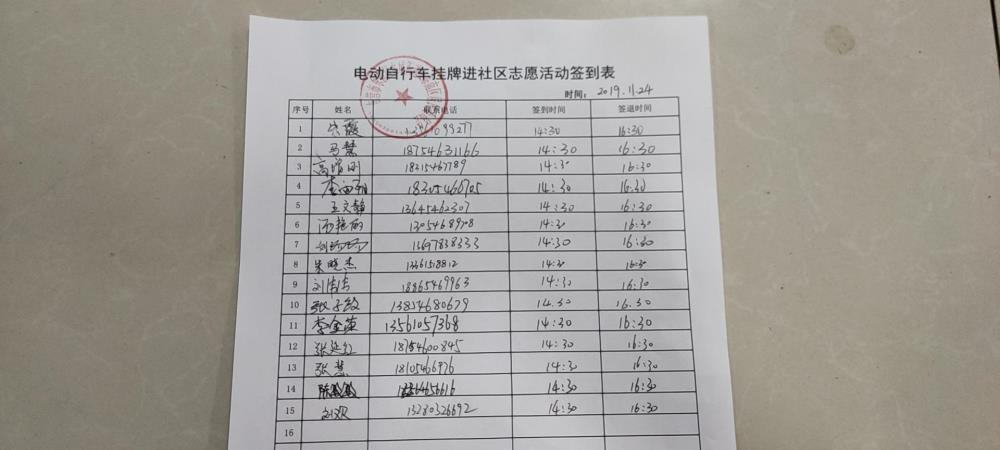 电动自行车挂牌进社区志愿活动签到表
时间: 2019.11.24
序号 姓名 联系电话 签到时间 签退时间
1 宋霞 99277 14:30 16:30
2 马慧 18754631166 14:30 16:30
3 14:30 16:30
4 14:30 16:30
5 王文静 13645462307 14:30 16:30
6 14:30 16:30
7 13697838333 14:30 16:30
8 朱晓杰 14:30 16:30
9 刘倩倩 18865469963 14:30 16:30
10 13854680679 14.30 16.30
11 李金萍 13561057368 14:30 16:30
12 张延红 18754600845 14:30 16:30
13 张慧 18105466926 14:30 16:30
14 14:30 16:30
15 刘欢 13280326692 14:30 16:30
16